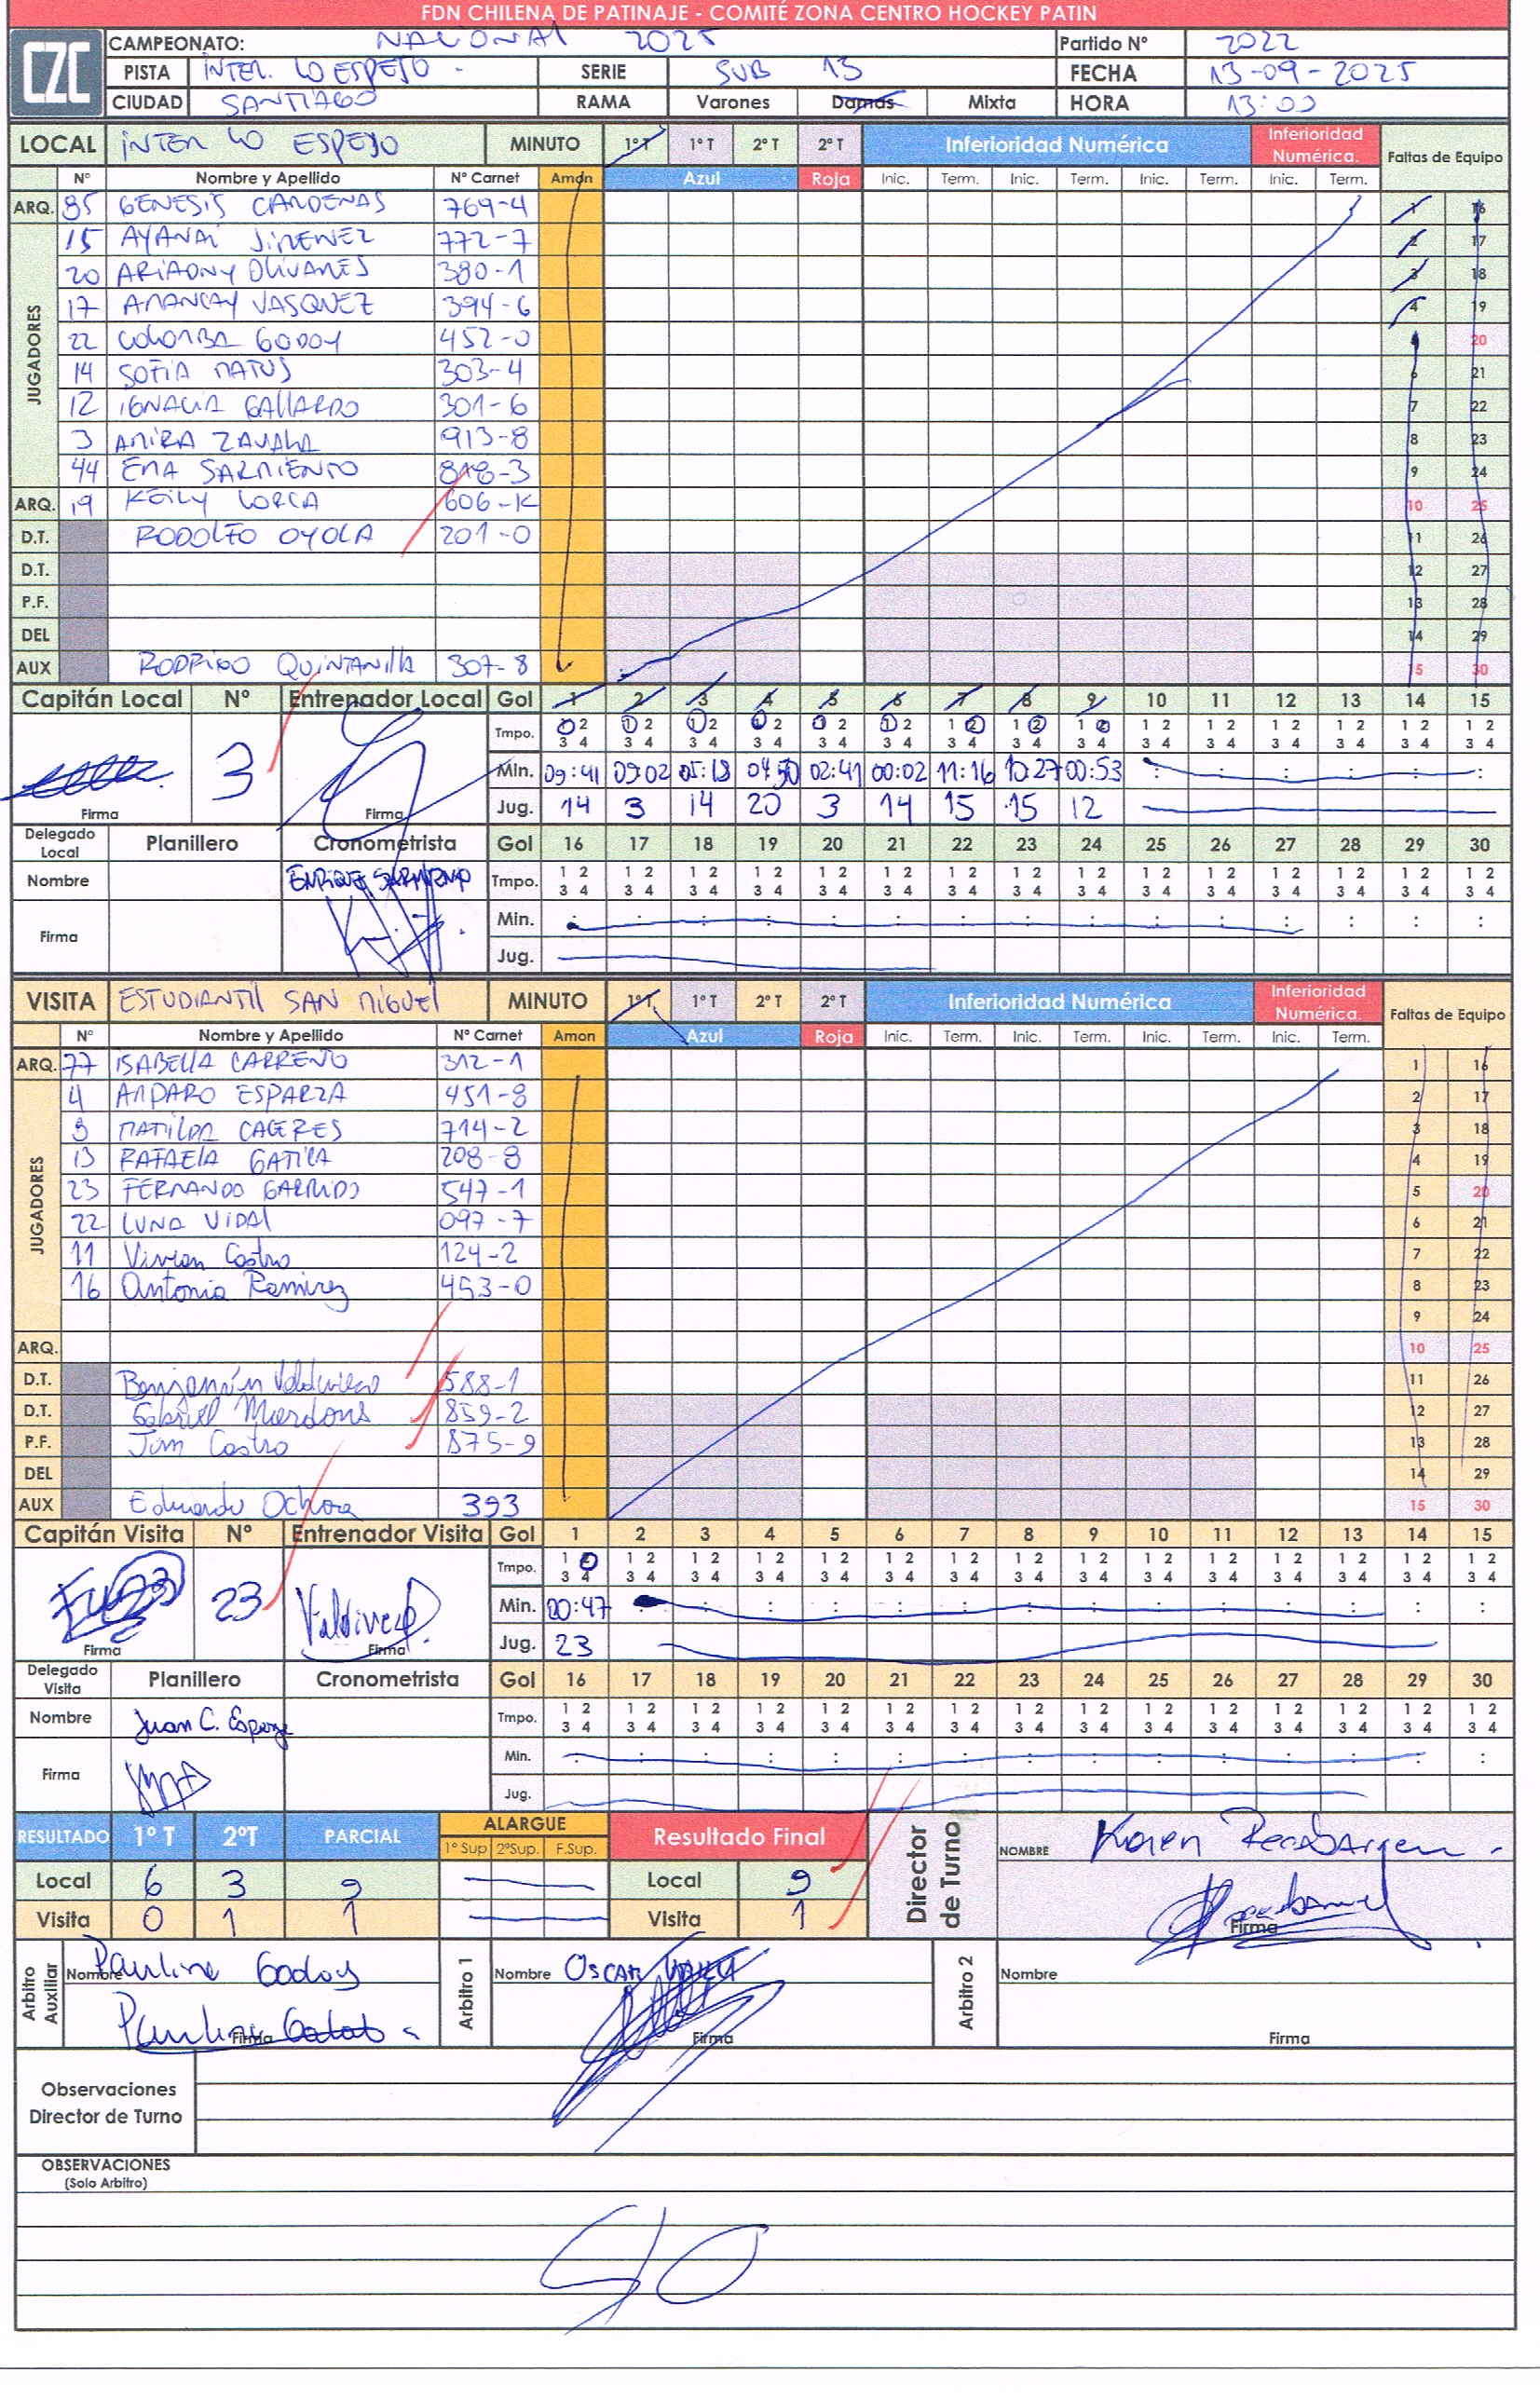 FDN CHILENA DE PATINAJE - COMITÉ ZONA CENTRO HOCKEY PATIN
CZC
CAMPEONATO: NACIONAL 2025 Partido Nº 2022
PISTA INTER. LO ESPEJO - SERIE SUB 13 FECHA 13-09-2025
CIUDAD SANTIAGO RAMA Varones Damas Mixta HORA 13:00
LOCAL INTER LO ESPEJO MINUTO 1º T 1º T 2º T 2º T Inferioridad Numérica Inferioridad Numérica. Faltas de Equipo
Nº Nombre y Apellido Nº Carnet Amon Azul Roja Inic. Term. Inic. Term. Inic. Term. Inic. Term.
ARQ. 85 GENESIS CARDENAS 769-4 1 16
JUGADORES
15 AYANAI JIMENEZ 772-7 2 17
20 ARIADNY OLIVARES 380-1 3 18
17 AMANCAY VASQUEZ 394-6 4 19
22 COLOMBA GODOY 452-0 20
14 SOFIA MATUS 303-4 6 21
12 IGNACIA GALLARDO 301-6 7 22
3 AMIRA ZAVALA 913-8 8 23
44 EMA SARMIENTO 818-3 9 24
ARQ. 19 KEILY LORCA 606-K 10 25
D.T. RODOLFO OYOLA 201-0 11 26
D.T. 12 27
P.F. 13 28
DEL 14 29
AUX RODRIGO QUINTANILLA 307-8 15 30
Capitán Local Nº Entrenador Local Gol 1 2 3 4 5 6 7 8 9 10 11 12 13 14 15
Tmpo. 1 2 1 2 1 2 1 2 1 2 1 2 1 2 1 2 1 2 1 2 1 2 1 2 1 2 1 2 1 2
3 4 3 4 3 4 3 4 3 4 3 4 3 4 3 4 3 4 3 4 3 4 3 4 3 4 3 4 3 4
3 Min. 09:41 09:02 05:18 04:50 02:41 00:02 11:16 10:27 00:53 : : : : : :
Firma Firma Jug. 14 3 14 20 3 14 15 15 12
Delegado Local Planillero Cronometrista Gol 16 17 18 19 20 21 22 23 24 25 26 27 28 29 30
Nombre ENRIQUE SARMIENTO Tmpo. 1 2 1 2 1 2 1 2 1 2 1 2 1 2 1 2 1 2 1 2 1 2 1 2 1 2 1 2 1 2
3 4 3 4 3 4 3 4 3 4 3 4 3 4 3 4 3 4 3 4 3 4 3 4 3 4 3 4 3 4
Firma Min. : : : : : : : : : : : : : : :
Jug.
VISITA ESTUDIANTIL SAN MIGUEL MINUTO 1º T 1º T 2º T 2º T Inferioridad Numérica Inferioridad Numérica. Faltas de Equipo
Nº Nombre y Apellido Nº Carnet Amon Azul Roja Inic. Term. Inic. Term. Inic. Term. Inic. Term.
ARQ. 77 ISABELLA CARREÑO 312-1 1 16
JUGADORES
4 AMPARO ESPARZA 451-8 2 17
9 MATILDA CACERES 714-2 3 18
13 RAFAELA GATICA 208-8 4 19
23 FERNANDO GARRIDO 547-1 5 20
22 LUNA VIDAL 097-7 6 21
11 Vivian Castro 124-2 7 22
16 Antonia Ramirez 453-0 8 23
9 24
ARQ. 10 25
D.T. Benjamín Valdivieso 588-1 11 26
D.T. Gabriel Mardons 859-2 12 27
P.F. Jim Castro 875-9 13 28
DEL 14 29
AUX Eduardo Ochoa 393 15 30
Capitán Visita Nº Entrenador Visita Gol 1 2 3 4 5 6 7 8 9 10 11 12 13 14 15
Tmpo. 1 2 1 2 1 2 1 2 1 2 1 2 1 2 1 2 1 2 1 2 1 2 1 2 1 2 1 2 1 2
3 4 3 4 3 4 3 4 3 4 3 4 3 4 3 4 3 4 3 4 3 4 3 4 3 4 3 4 3 4
23 Min. 00:47 : : : : : : : : : : : : : :
Firma Firma Jug. 23
Delegado Visita Planillero Cronometrista Gol 16 17 18 19 20 21 22 23 24 25 26 27 28 29 30
Nombre Juan C. Esparza Tmpo. 1 2 1 2 1 2 1 2 1 2 1 2 1 2 1 2 1 2 1 2 1 2 1 2 1 2 1 2 1 2
3 4 3 4 3 4 3 4 3 4 3 4 3 4 3 4 3 4 3 4 3 4 3 4 3 4 3 4 3 4
Firma Min. : : : : : : : : : : : : : : :
Jug.
RESULTADO 1º T 2ºT PARCIAL ALARGUE Resultado Final Director de Turno NOMBRE Karen Recabarren
1º Sup 2ºSup. F.Sup.
Local 6 3 9 Local 9
Visita 0 1 1 Visita 1 Firma
Arbitro Auxiliar Nombre Paulina Godoy Arbitro 1 Nombre OSCAR Arbitro 2 Nombre
Firma Firma Firma
Observaciones
Director de Turno
OBSERVACIONES
(Solo Arbitro)
S/O